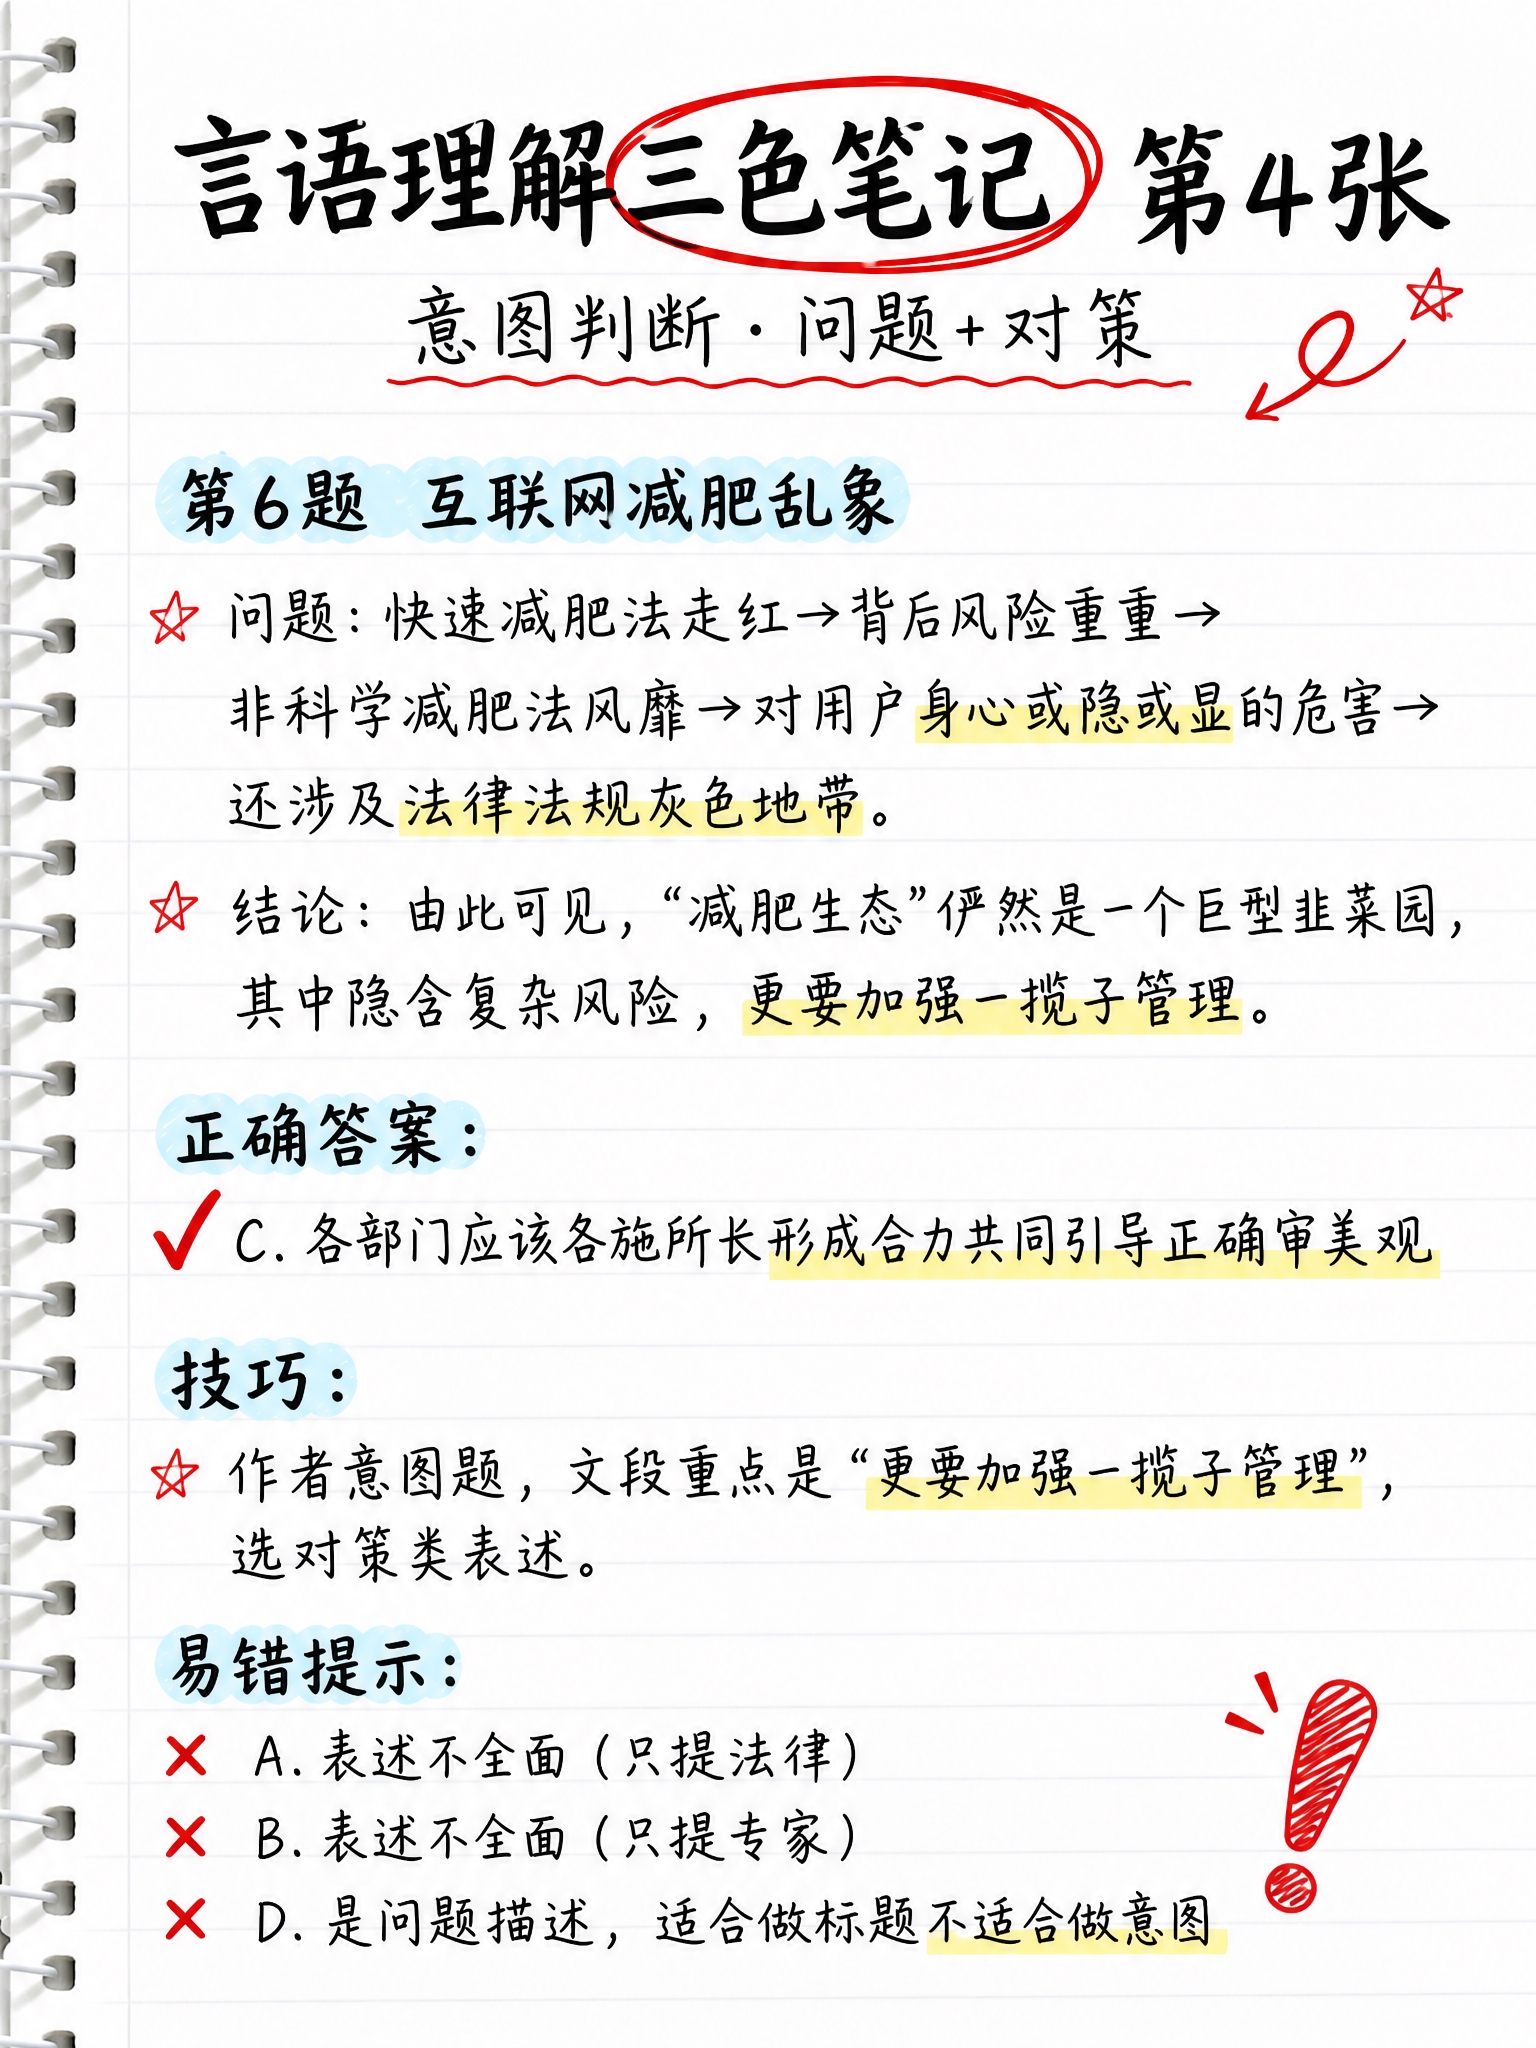 言语理解三色笔记 第4张
意图判断·问题+对策
第6题 互联网减肥乱象
问题：快速减肥法走红→背后风险重重→
非科学减肥法风靡→对用户身心或隐或显的危害→
还涉及法律法规灰色地带。
结论：由此可见，“减肥生态”俨然是一个巨型韭菜园，
其中隐含复杂风险，更要加强一揽子管理。
正确答案：
C. 各部门应该各施所长形成合力共同引导正确审美观
技巧：
作者意图题，文段重点是“更要加强一揽子管理”，
选对策类表述。
易错提示：
A. 表述不全面（只提法律）
B. 表述不全面（只提专家）
D. 是问题描述，适合做标题不适合做意图